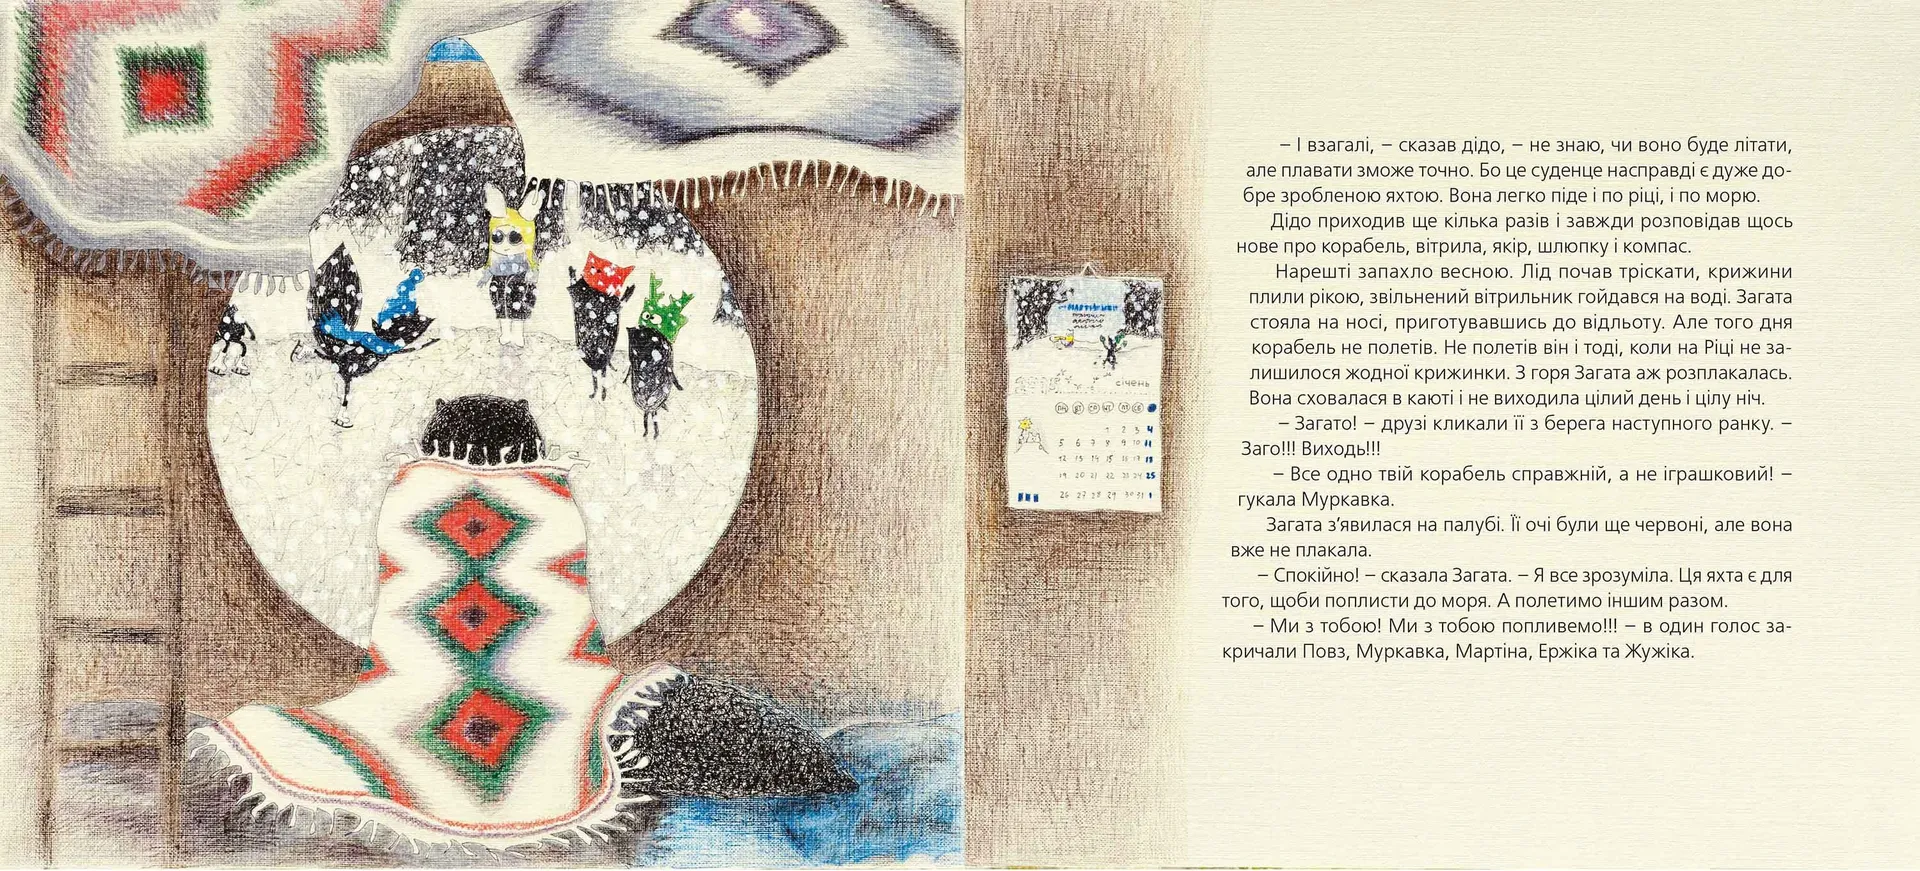 – І взагалі, – сказав дідо, – не знаю, чи воно буде літати,
але плавати зможе точно. Бо це суденце насправді є дуже до-
бре зробленою яхтою. Вона легко піде і по ріці, і по морю.
Дідо приходив ще кілька разів і завжди розповідав щось
нове про корабель, вітрила, якір, шлюпку і компас.
Нарешті запахло весною. Лід почав тріскати, крижини
плили рікою, звільнений вітрильник гойдався на воді. Загата
стояла на носі, приготувавшись до відльоту. Але того дня
корабель не полетів. Не полетів він і тоді, коли на Ріці не за-
лишилося жодної крижинки. З горя Загата аж розплакалась.
Вона сховалася в каюті і не виходила цілий день і цілу ніч.
– Загато! – друзі кликали її з берега наступного ранку. –
Заго!!! Виходь!!!
– Все одно твій корабель справжній, а не іграшковий! –
гукала Муркавка.
Загата з’явилася на палубі. Її очі були ще червоні, але вона
вже не плакала.
– Спокійно! – сказала Загата. – Я все зрозуміла. Ця яхта є для
того, щоби поплисти до моря. А полетимо іншим разом.
– Ми з тобою! Ми з тобою попливемо!!! – в один голос за-
кричали Повз, Муркавка, Мартіна, Ержіка та Жужіка.
січень
пн вт ср чт пт сб
1 2 3 4
5 6 7 8 9 10 11
12 13 14 15 16 17 18
19 20 21 22 23 24 25
26 27 28 29 30 31 1